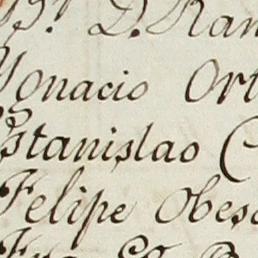 D. Ram
Ygnacio Ort
Estanislao C
Felipe Obes